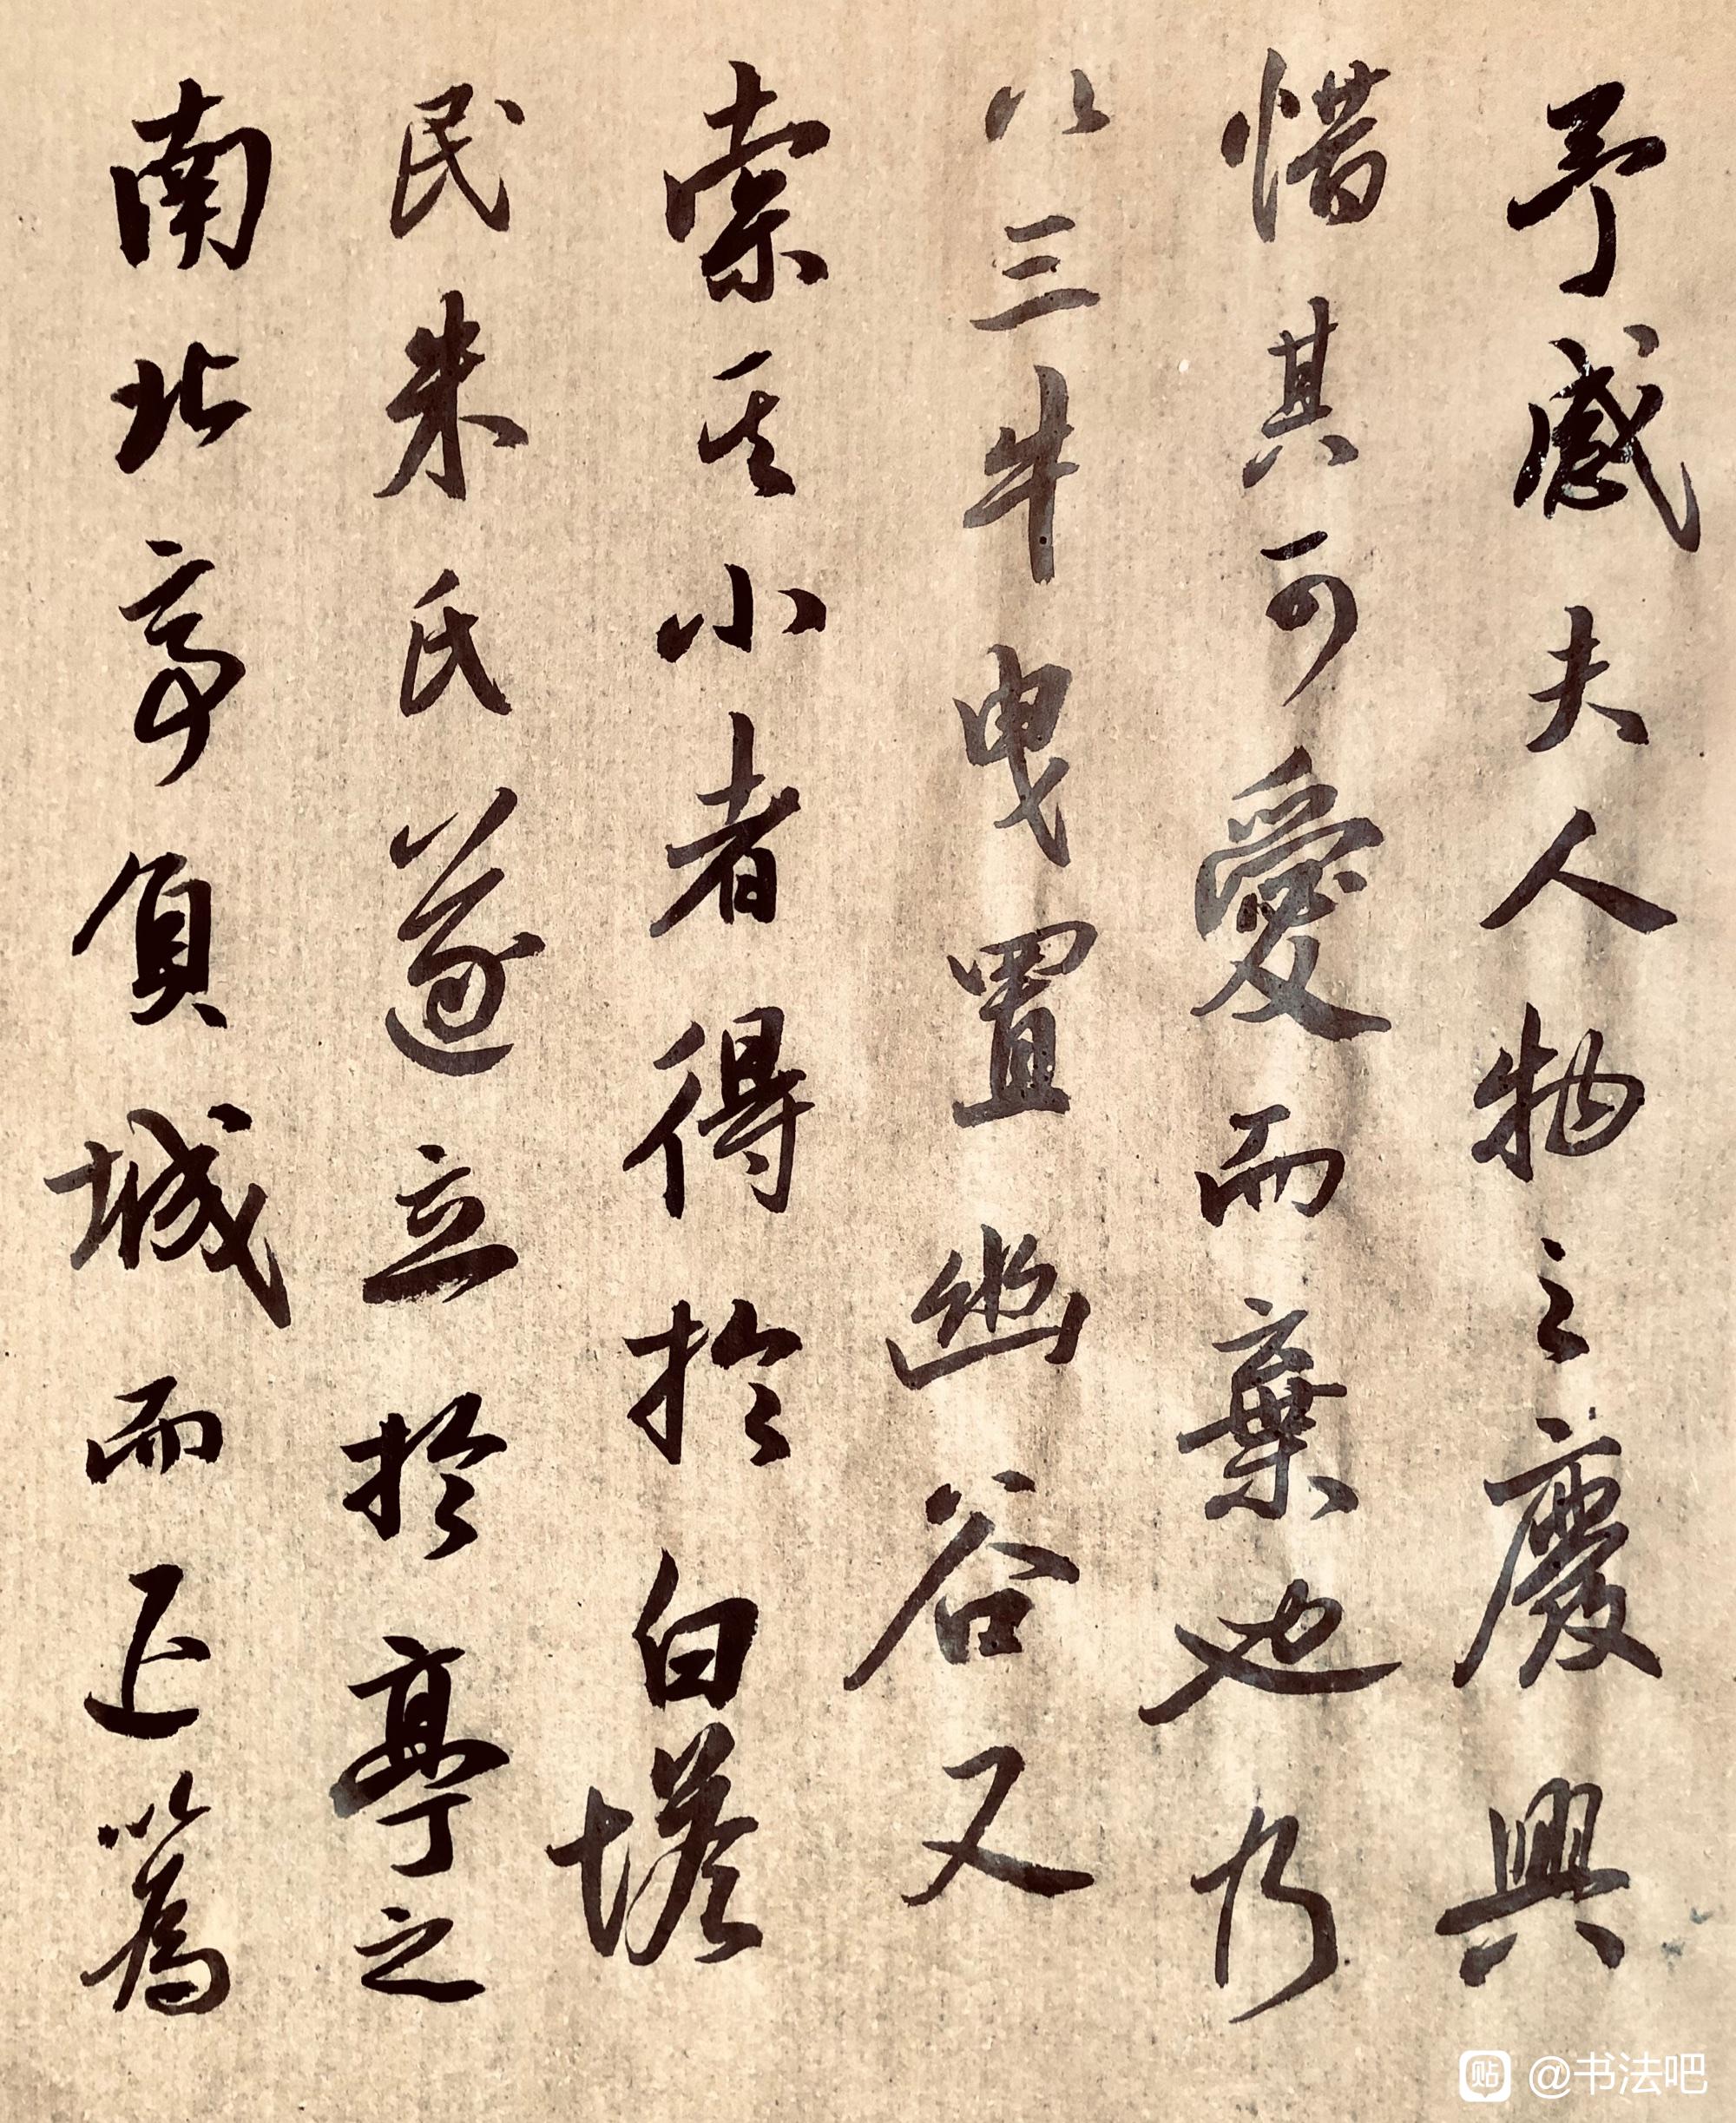 予感夫人物之廢興
惜其可愛而棄也乃
以三牛曳置幽谷又
索其小者得於白塔
民朱氏遂立於亭之
南北亭負城而近以為
贴 @书法吧